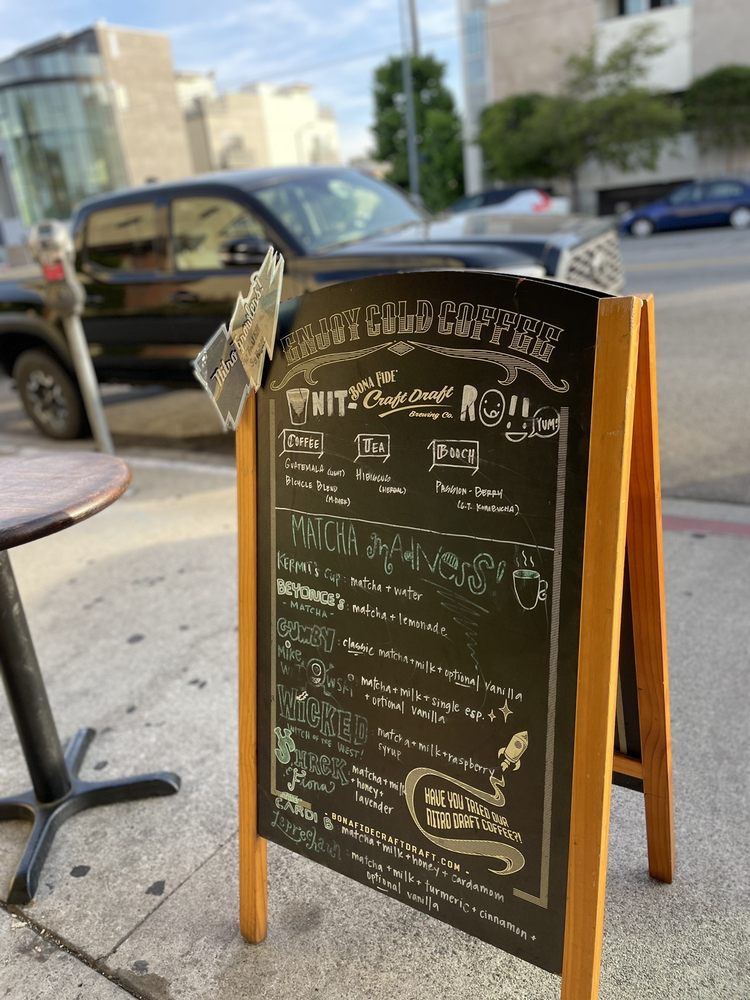 ENJOY COLD COFFEE
NIT- BONA FIDE Craft Draft Brewing Co. RO!! YUM!
COFFEE TEA BOOCH
GUATEMALA (LIGHT) HIBISCUS PASSION-BERRY
BICYCLE BLEND (HERBAL) (G.T. KOMBUCHA)
(M-DARK)
MATCHA MADNESS!
KERMIT'S CUP: matcha + water
BEYONCE'S: matcha + lemonade
- MATCHA -
GUMBY: classic matcha+milk+optional vanilla
MIKE
WOWSKI matcha+milk+single esp.
+ optional vanilla
WICKED matcha+milk+raspberry
WITCH OF THE WEST! syrup
SHREK matcha+milk
Fiona +honey+
lavender
HAVE YOU TRIED OUR
NITRO DRAFT COFFEE?!
CARDI B - BONAFIDECRAFTDRAFT.COM -
matcha+milk+honey+cardamom
Leprechaun: matcha+milk+turmeric+cinnamon+
optional vanilla